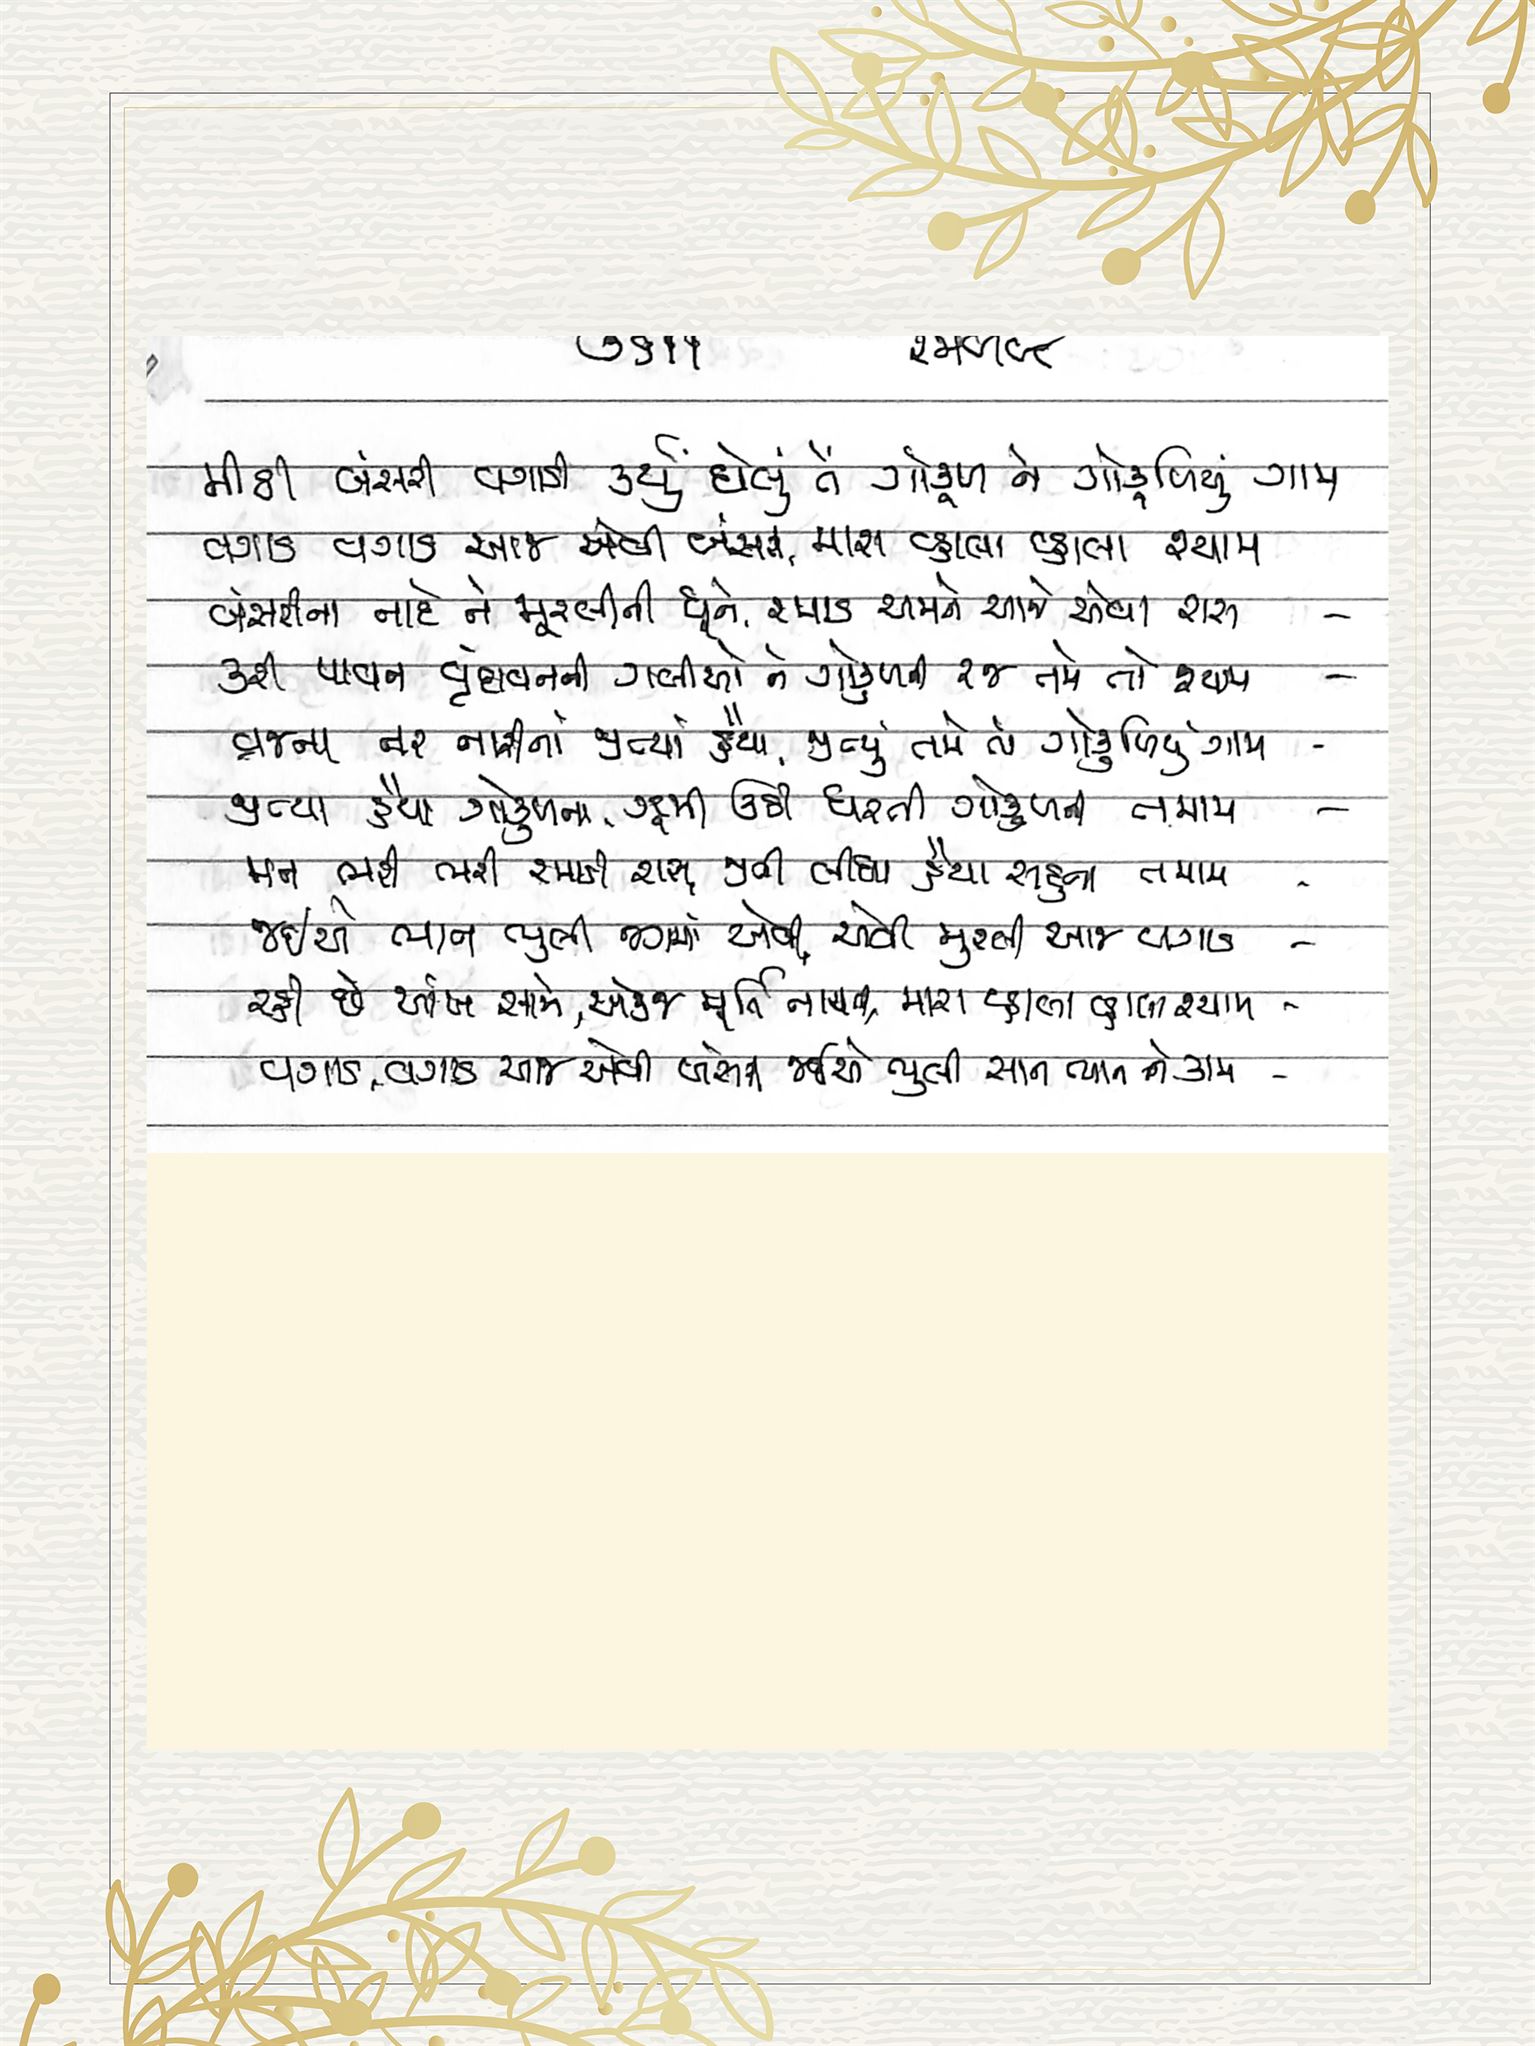 મીઠી બંસરી વગાડી કર્યું ઘેલું તેં ગોકૂળ ને ગોકૂળિયું ગામ
વગાડ વગાડ આજ એવી બંસરી, મારા વ્હાલા વ્હાલા શ્યામ
બંસરીના નાદે ને મૂરલીની ધૂને, રમાડ અમને આજે એવા રાસ -
કરી પાવન વૃંદાવનની ગલીઓ ને ગોકુળની રજ તમે તો શ્યામ -
વ્રજના નર નારીનાં જીત્યાં હૈયા, જીત્યું તમે તો ગોકુળિયું ગામ -
જીત્યા હૈયા ગોકુળના, ઝૂમી ઉઠી ધરતી ગોકુળની તમામ -
મન ભરી ભરી રમાડી રાસ, જીતી લીધા હૈયા સહુના તમામ -
જઈએ ભાન ભુલી જગમાં એવી, એવી મુરલી આજ વગાડ -
રહી છે આંખ સામે, એકજ મૂર્તિ મારા વ્હાલા વ્હાલા શ્યામ -
વગાડ, વગાડ આજ એવી બંસરી જઈએ ભુલી સાન ભાન ને કામ -